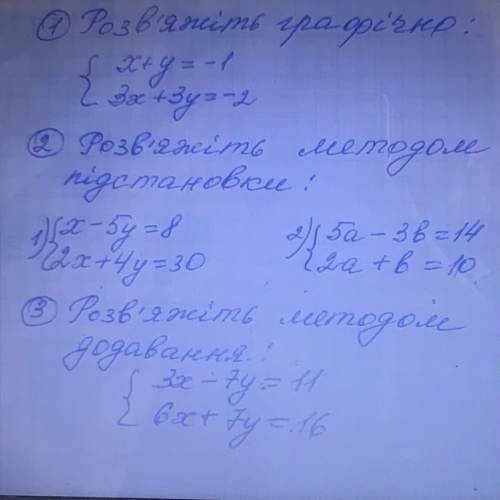 ① Розв'яжіть графічно:
{ x+y = -1
3x+3y=-2
② Розв'яжіть методом
підстановки:
1) { x-5y=8 2) { 5a-3b=14
2x+4y=30 2a+b=10
③ Розв'яжіть методом
додавання:
{ 3x-7y=11
6x+7y=16